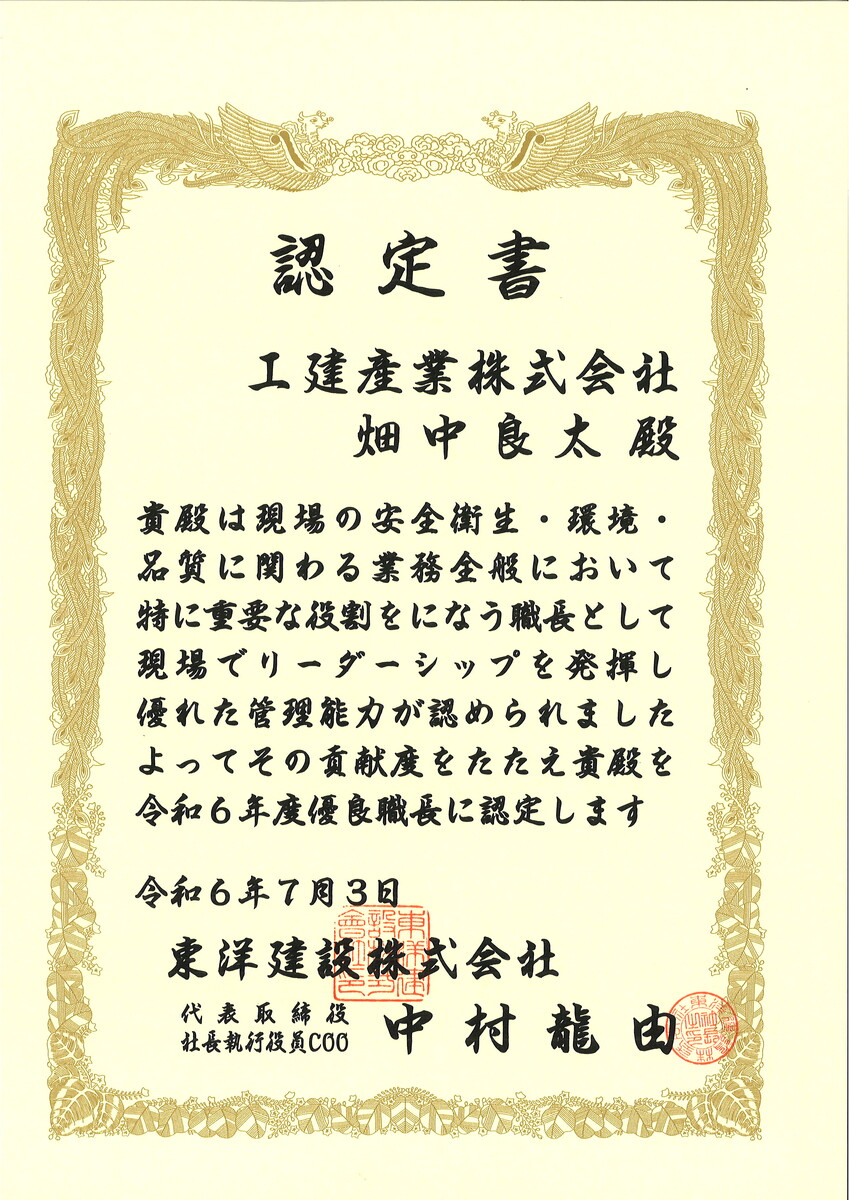 認定書
工建産業株式会社
畑中良太殿
貴殿は現場の安全衛生・環境・
品質に関わる業務全般において
特に重要な役割をになう職長として
現場でリーダーシップを発揮し
優れた管理能力が認められました
よってその貢献度をたたえ貴殿を
令和6年度優良職長に認定します
令和6年7月3日
東洋建設株式会社
代表取締役
社長執行役員COO
中村龍由